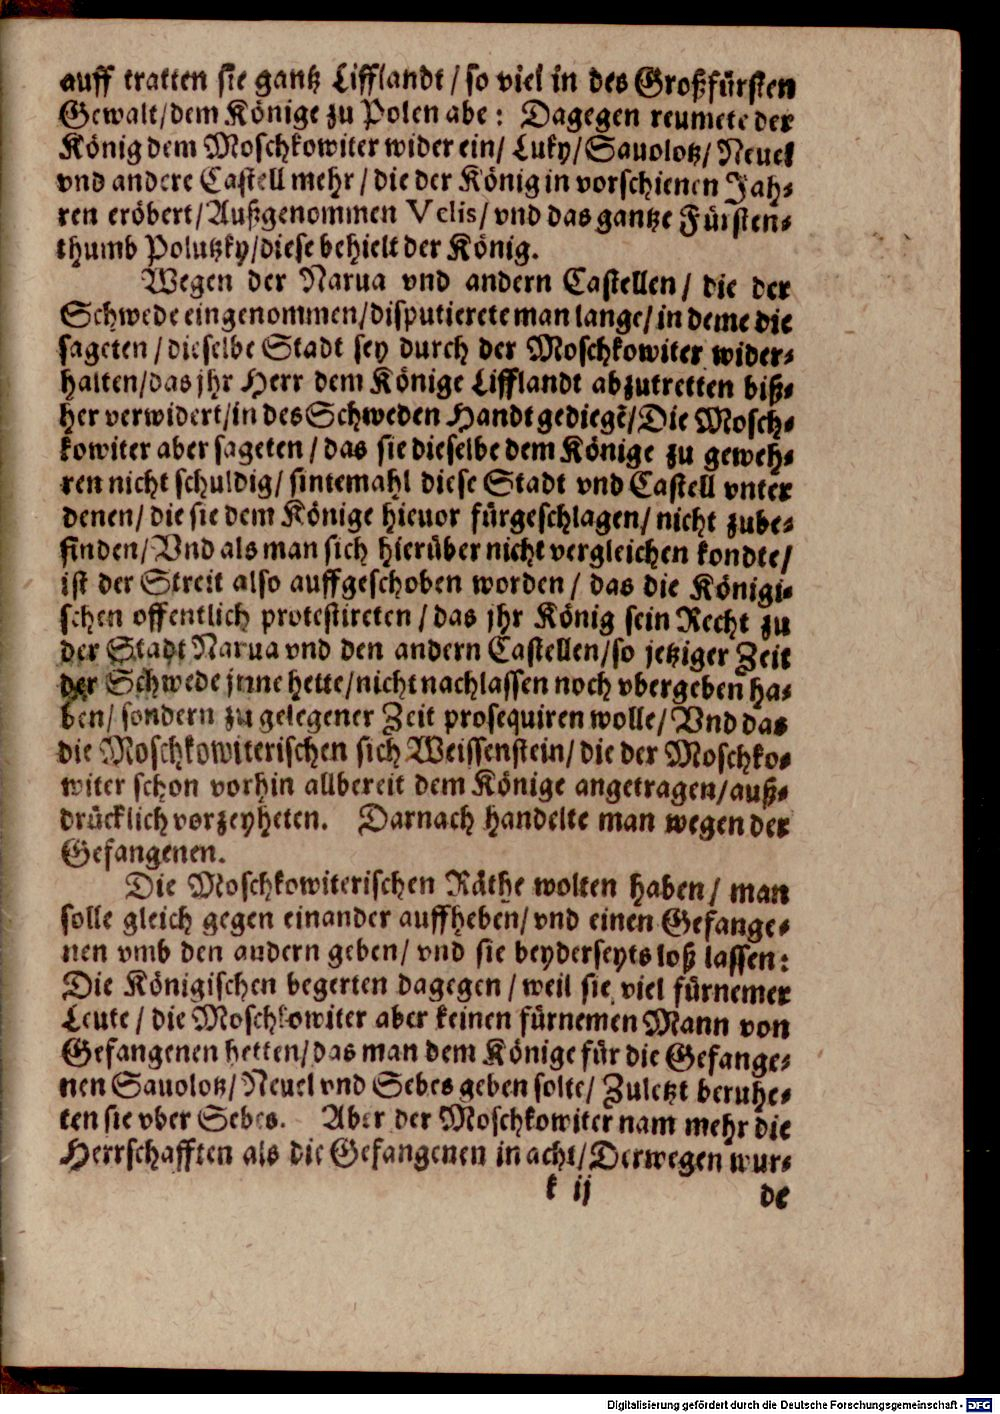 auff tratten sie gantz Lifflandt / so viel in des Großfürsten
Gewalt/dem Könige zu Polen abe: Dagegen reumete der
König dem Moschkowiter wider ein/ Luky/Sauolotz/ Neuel
vnd andere Castell mehr / die der König in vorschienen Jah-
ren eröbert/Außgenommen Velis/ vnd das gantze Fürsten-
thumb Polutzky/diese behielt der König.
Wegen der Narua vnd andern Castellen/ die der
Schwede eingenommen/disputierete man lange/ in deme die
sageten / dieselbe Stadt sey durch der Moschkowiter wider-
halten/das jhr Herr dem Könige Lifflandt abzutretten biß-
her verwidert/in des Schweden Handt gediegẽ/Die Mosch-
kowiter aber sageten / das sie dieselbe dem Könige zu geweh-
ren nicht schuldig/ sintemahl diese Stadt vnd Castell vnter
denen/ die sie dem Könige hieuor fürgeschlagen/ nicht zube-
finden/ Vnd als man sich hierüber nicht vergleichen kondte/
ist der Streit also auffgeschoben worden / das die Königi-
schen offentlich protestireten / das jhr König sein Recht zu
der Stadt Narua vnd den andern Castellen/so jetziger Zeit
der Schwede jnne hette/nicht nachlassen noch vbergeben ha-
ben/ sondern zu gelegener Zeit prosequiren wolle/ Vnd das
die Moschkowiterischen sich Weissenstein/ die der Moschko-
witer schon vorhin allbereit dem Könige angetragen/auß-
drücklich vorzeyheten. Darnach handelte man wegen der
Gefangenen.
Die Moschkowiterischen Räthe wolten haben/ man
solle gleich gegen einander auffheben/ vnd einen Gefange-
nen vmb den andern geben/ vnd sie beyderseyts loß lassen:
Die Königischen begerten dagegen / weil sie viel fürnemer
Leute / die Moschkowiter aber keinen fürnemen Mann von
Gefangenen hetten/das man dem Könige für die Gefange-
nen Sauolotz/ Neuel vnd Sebes geben solte/ Zuletzt beruhe-
ten sie vber Sebes. Aber der Moschkowiter nam mehr die
Herrschafften als die Gefangenen in acht/Derwegen wur-
k ij de
Digitalisierung gefördert durch die Deutsche Forschungsgemeinschaft - DFG